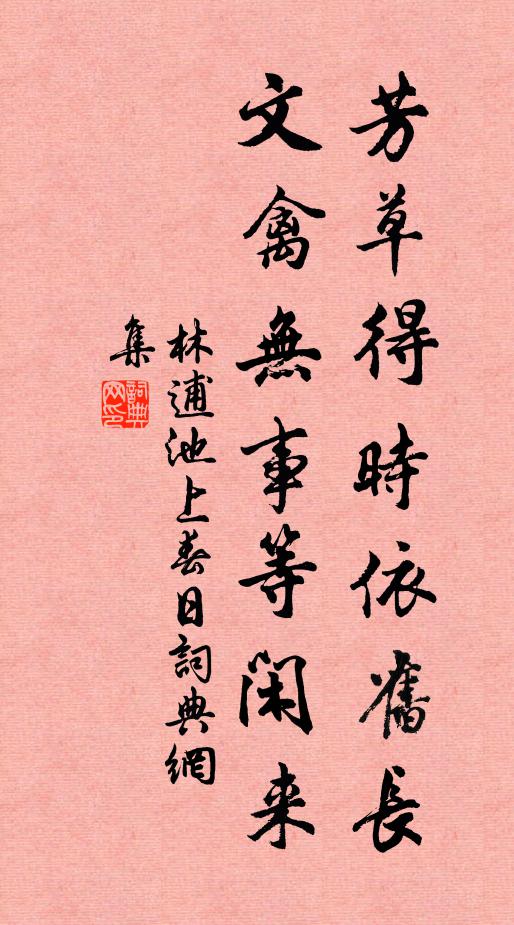 芳草得時依舊長
文禽無事等閑来
林逋池上春日詞典網
集
詞典
网印